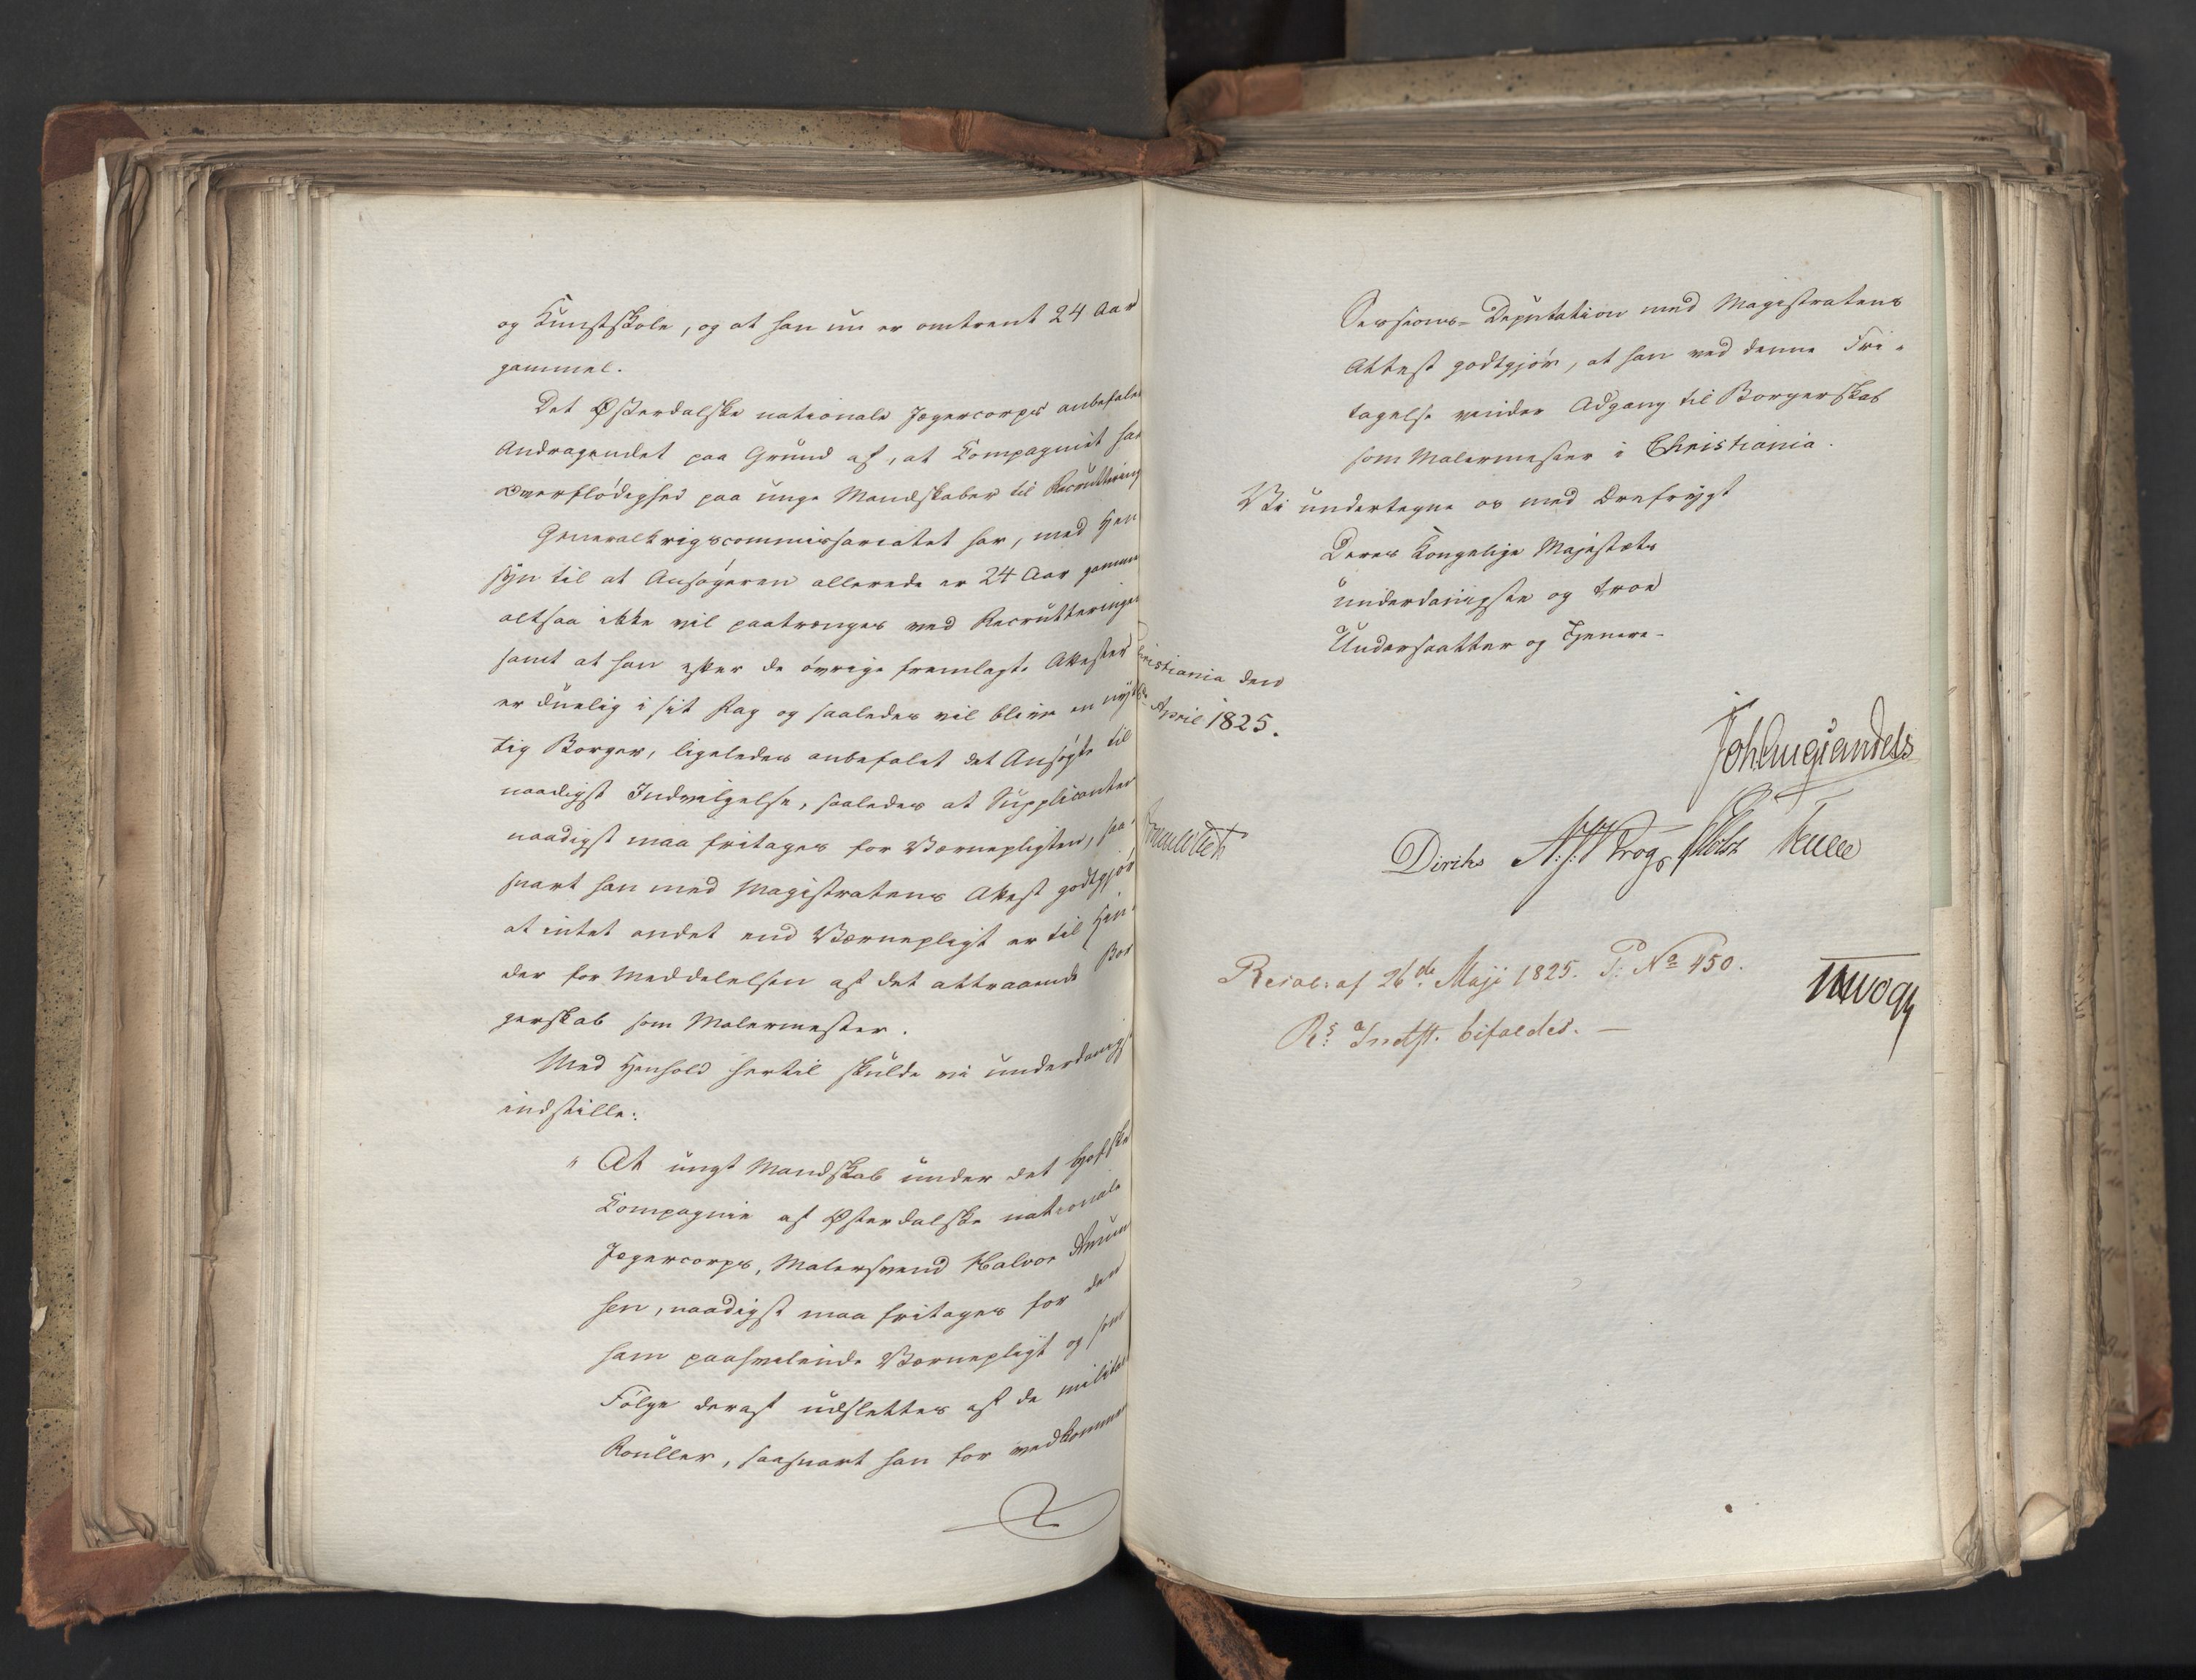 og Kunstskole, og at han nu er omtrent 24 Aar
gammel.
Det Østerdalske nationale Jægercorps anbefaler
Andragendet paa Grund af, at Compagniet har
Overflödighed paa unge Mandskaber til Recruttering
Generalkrigscommissariatet har, med Hen
syn til at Ansögeren allerede er 24 Aar gammel
altsaa ikke vil paatrænges ved Recrutteringen
samt at han efter de övrige fremlagte Attester
er duelig i sit Fag og saaledes vil blive en nyt
tig Borger, ligeledes anbefalet det Ansögte til
naadigst Indvilgelse, saaledes at Supplicanten
naadigst maa fritages for Værnepligten, saa-
snart han med Magistratens Attest godtgjör
at intet andet end Værnepligt er til Hin-
der for Meddelelsen af det attraaende Bor
gerskab som Malermester.
Med Henhold hertil skulde vi underdanigst
indstille:
" At ungt Mandskab under det Hofske
Compagnie af Østerdalske nationale
Jægercorps, Malersvend Halvor Amun
sen, naadigst maa fritages for den
ham paahvilende Værnepligt og som
Fölge deraf udslettes af de militaire
Rouller, saasnart han for vedkommen
Sessions-Deputation med Magistratens
Attest godtgjör, at han ved denne Fri-
tagelse vinder Adgang til Borgerskab
som Malermester i Christiania.
Vi undertegne os med Ærefrygt
Deres Kongelige Majestæts
underdanigste og troe
Undersaatter og Tjenere.
Christiania den
April 1825.
Joh Aug Sandels
Diriks
Resol: af 26de Maji 1825. P: No 450.
Rs Indst. bifaldes. —